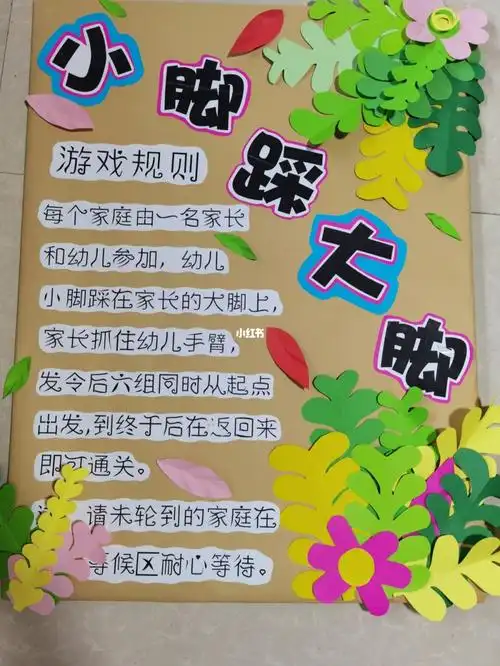 小脚踩大脚
游戏规则
每个家庭由一名家长
和幼儿参加，幼儿
小脚踩在家长的大脚上，
家长抓住幼儿手臂，
小红书
发令后六组同时从起点
出发，到终于后在返回来
即可通关。
请未轮到的家庭在
等候区耐心等待。